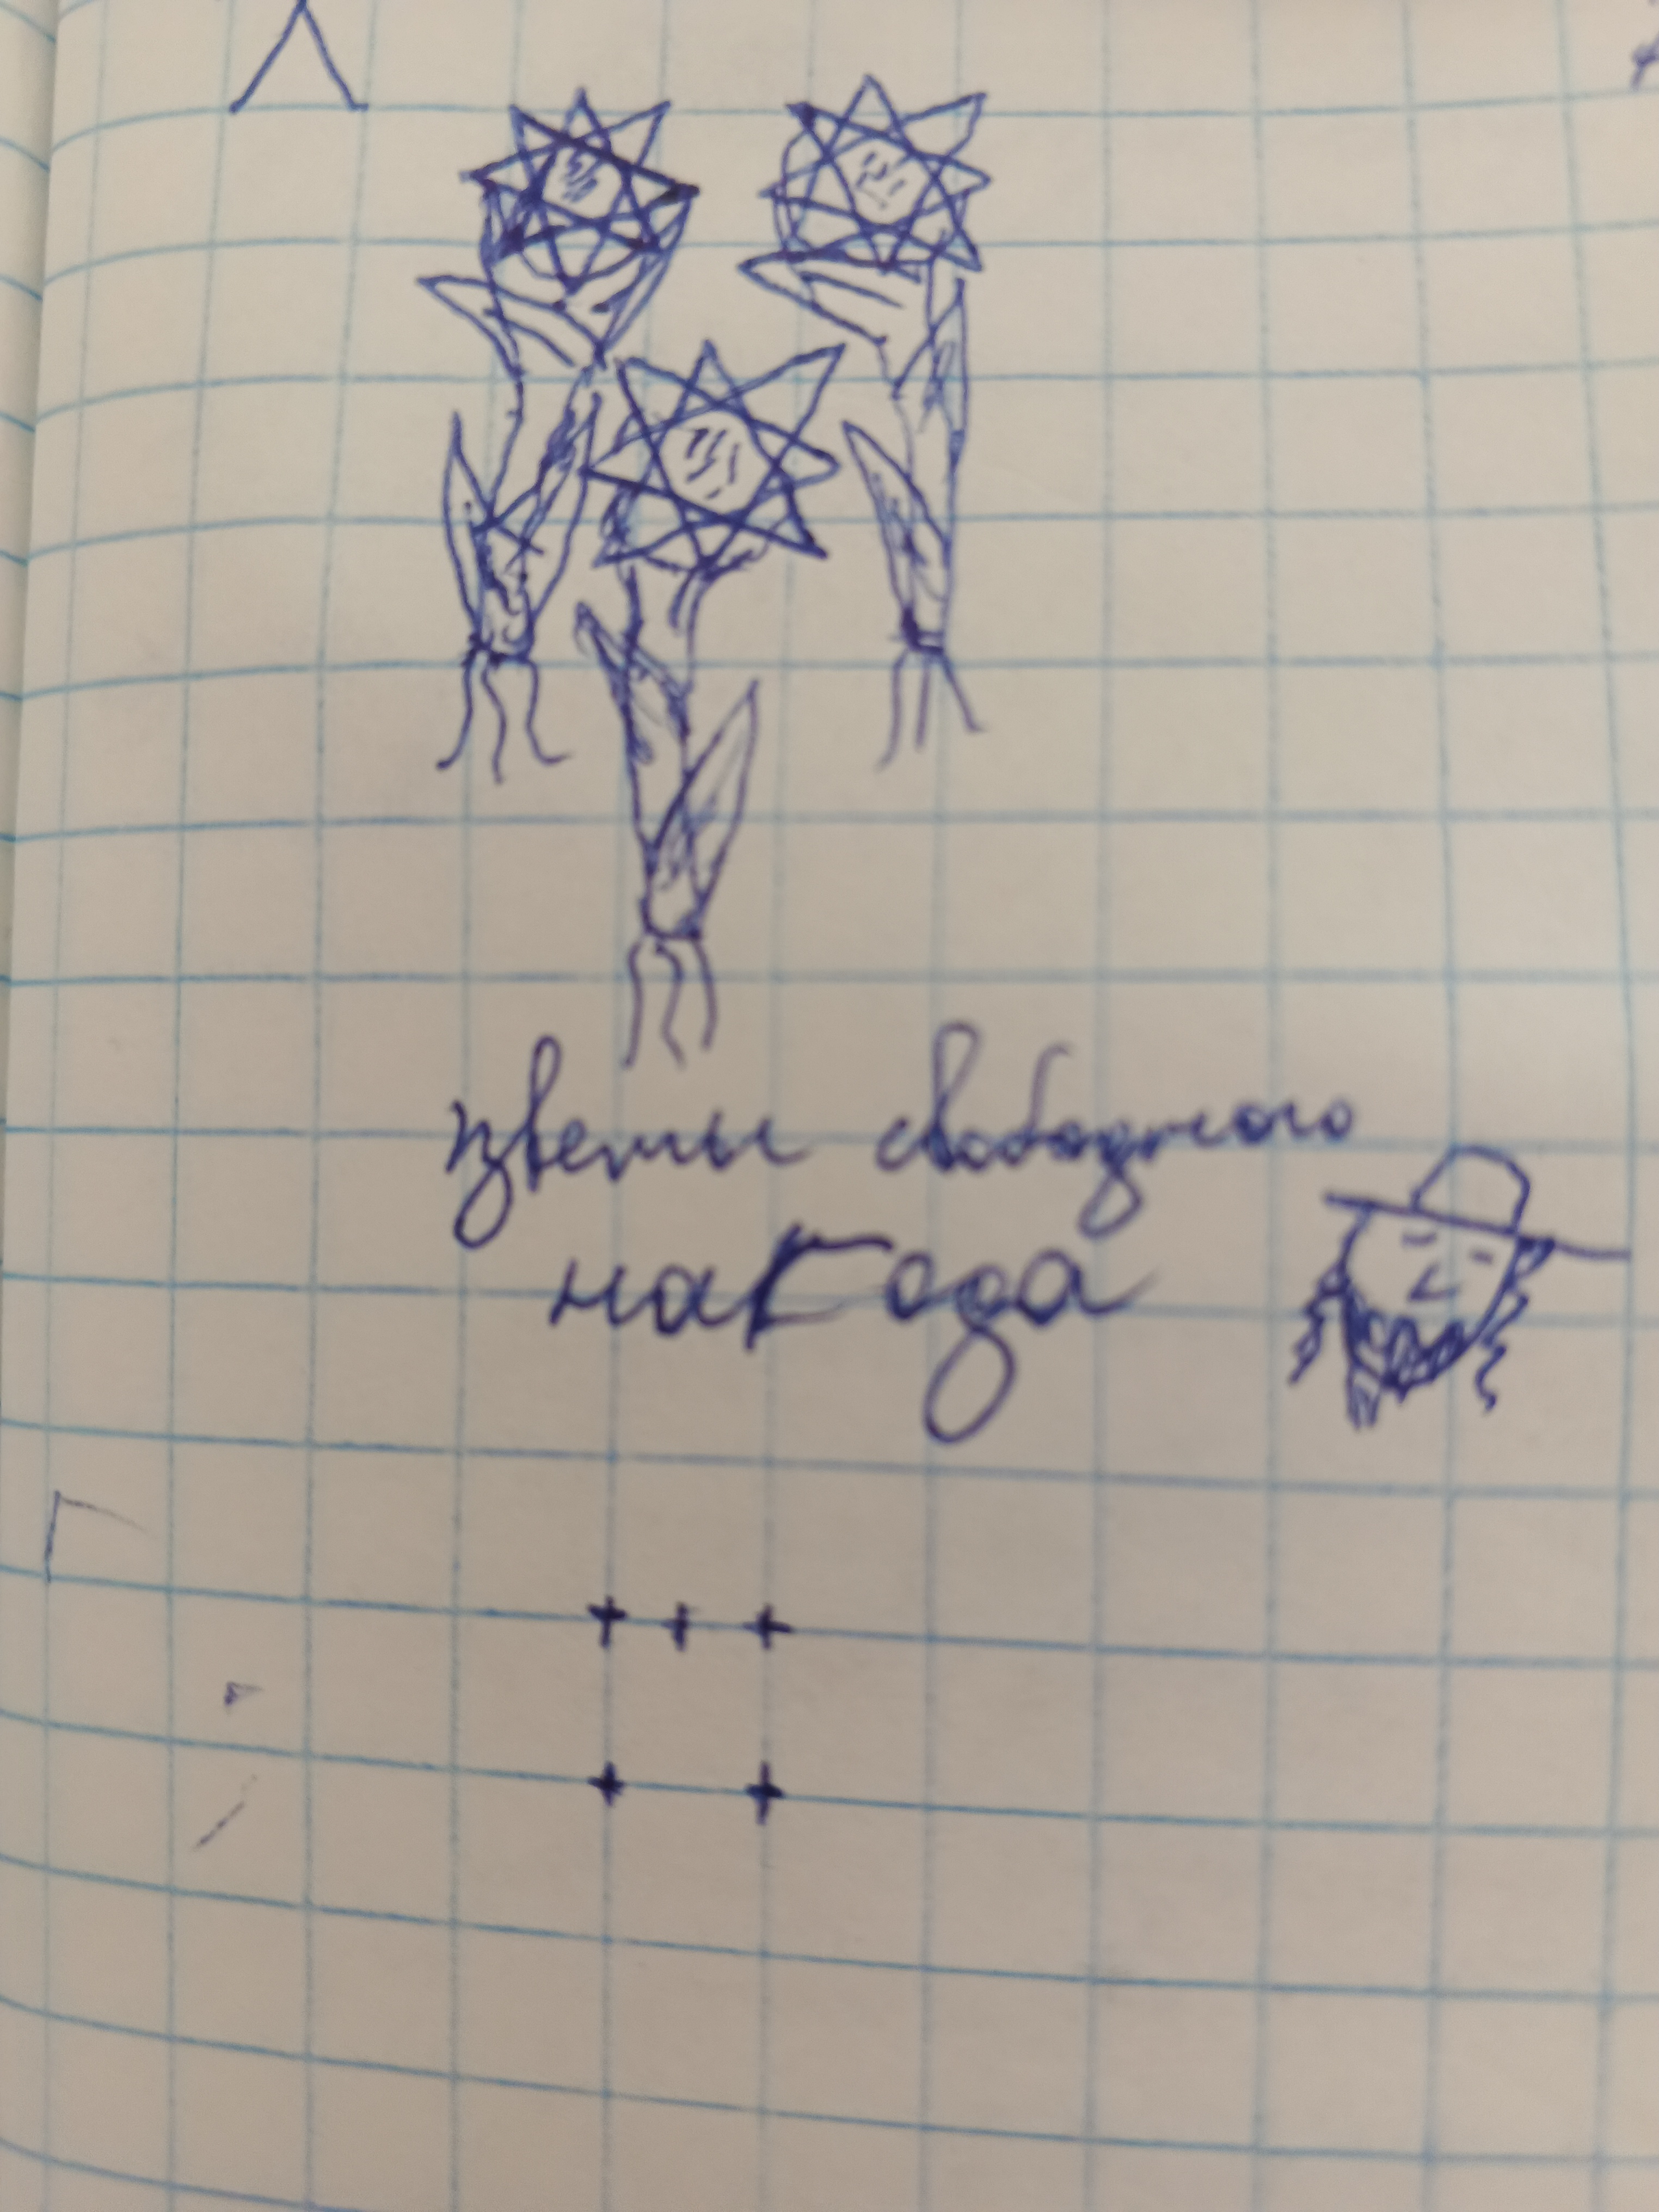 цветы свободного
наГода